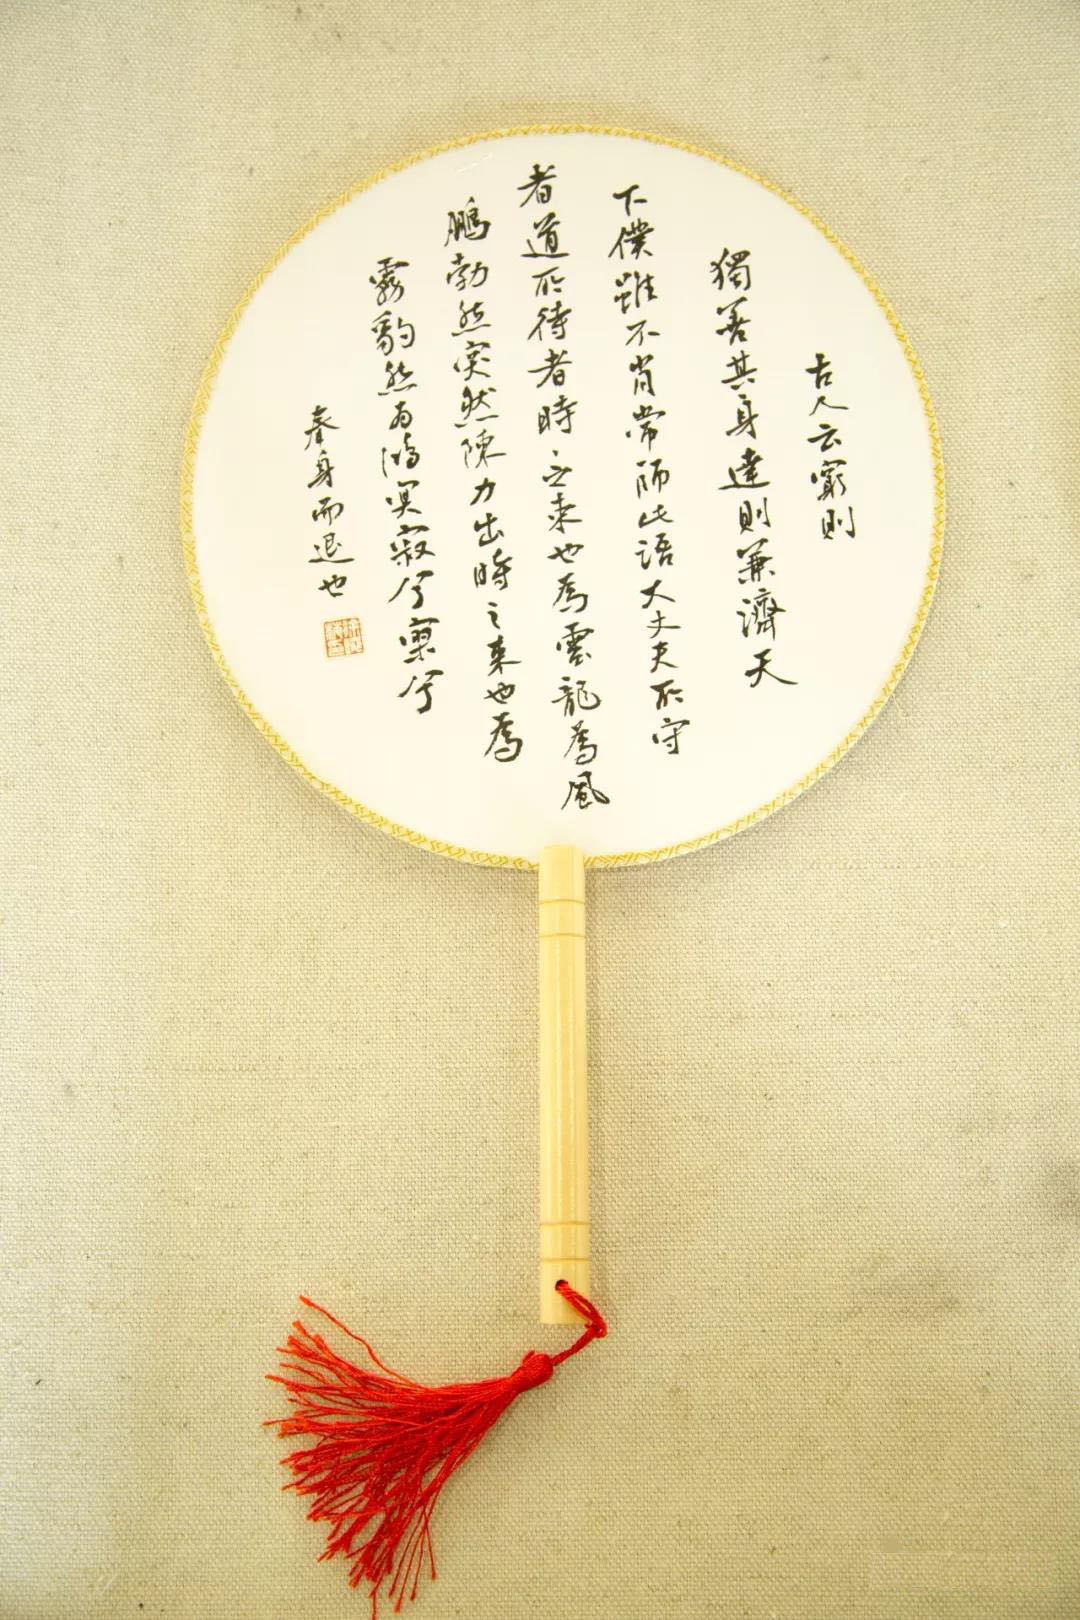 古人云窮則
獨善其身達則兼濟天
下僕雖不肖常師此语大丈夫所守
者道所待者時時之来也為雲龍為風
鵬勃然突然陳力出時之来也為
霧豹然为鴻冥寂兮寥兮
奉身而退也